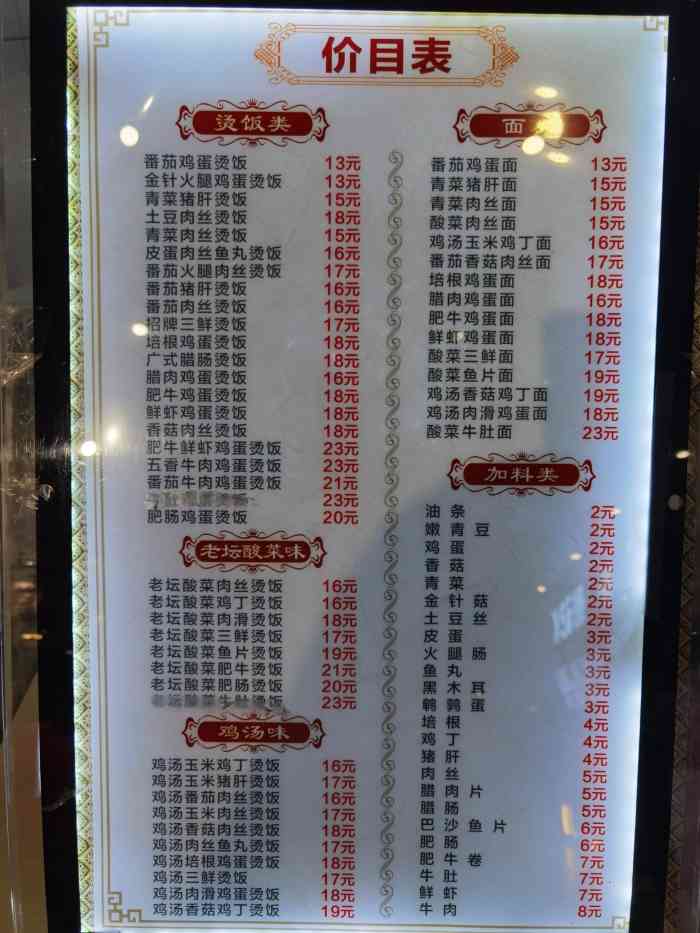 价目表
烫饭类
番茄鸡蛋烫饭 13元
金针火腿鸡蛋烫饭 13元
青菜猪肝烫饭 15元
土豆肉丝烫饭 18元
青菜肉丝烫饭 15元
皮蛋肉丝鱼丸烫饭 16元
番茄火腿肉丝烫饭 17元
番茄猪肝烫饭 16元
番茄肉丝烫饭 16元
招牌三鲜烫饭 17元
培根鸡蛋烫饭 18元
广式腊肠烫饭 18元
腊肉鸡蛋烫饭 16元
肥牛鸡蛋烫饭 18元
鲜虾鸡蛋烫饭 18元
香菇肉丝烫饭 18元
肥牛鲜虾鸡蛋烫饭 23元
五香牛肉鸡蛋烫饭 23元
番茄牛肉鸡蛋烫饭 21元
牛肚鸡蛋烫饭 23元
肥肠鸡蛋烫饭 20元
老坛酸菜味
老坛酸菜肉丝烫饭 16元
老坛酸菜鸡丁烫饭 16元
老坛酸菜肉滑烫饭 18元
老坛酸菜三鲜烫饭 17元
老坛酸菜鱼片烫饭 19元
老坛酸菜肥牛烫饭 21元
老坛酸菜肥肠烫饭 20元
老坛酸菜牛肚烫饭 23元
鸡汤味
鸡汤玉米鸡丁烫饭 16元
鸡汤玉米猪肝烫饭 17元
鸡汤番茄肉丝烫饭 16元
鸡汤玉米肉丝烫饭 17元
鸡汤香菇肉丝烫饭 18元
鸡汤肉丝鱼丸烫饭 17元
鸡汤培根鸡蛋烫饭 18元
鸡汤三鲜烫饭 17元
鸡汤肉滑鸡蛋烫饭 18元
鸡汤香菇鸡丁烫饭 19元
面
番茄鸡蛋面 13元
青菜猪肝面 15元
青菜肉丝面 15元
酸菜肉丝面 15元
鸡汤玉米鸡丁面 16元
番茄香菇肉丝面 17元
培根鸡蛋面 18元
腊肉鸡蛋面 16元
肥牛鸡蛋面 18元
鲜虾鸡蛋面 18元
酸菜三鲜面 17元
酸菜鱼片面 19元
鸡汤香菇鸡丁面 19元
鸡汤肉滑鸡蛋面 18元
酸菜牛肚面 23元
加料类
油条 2元
嫩青豆 2元
鸡蛋 2元
香菇 2元
青菜 2元
金针菇 2元
土豆丝 2元
皮蛋 3元
火腿肠 3元
鱼丸 3元
黑木耳 3元
鹌鹑蛋 3元
培根 4元
鸡丁 4元
猪肝 4元
肉丝 5元
腊肉片 5元
腊肠 5元
巴沙鱼片 6元
肥肠 6元
肥牛卷 7元
牛肚 7元
鲜虾 7元
牛肉 8元